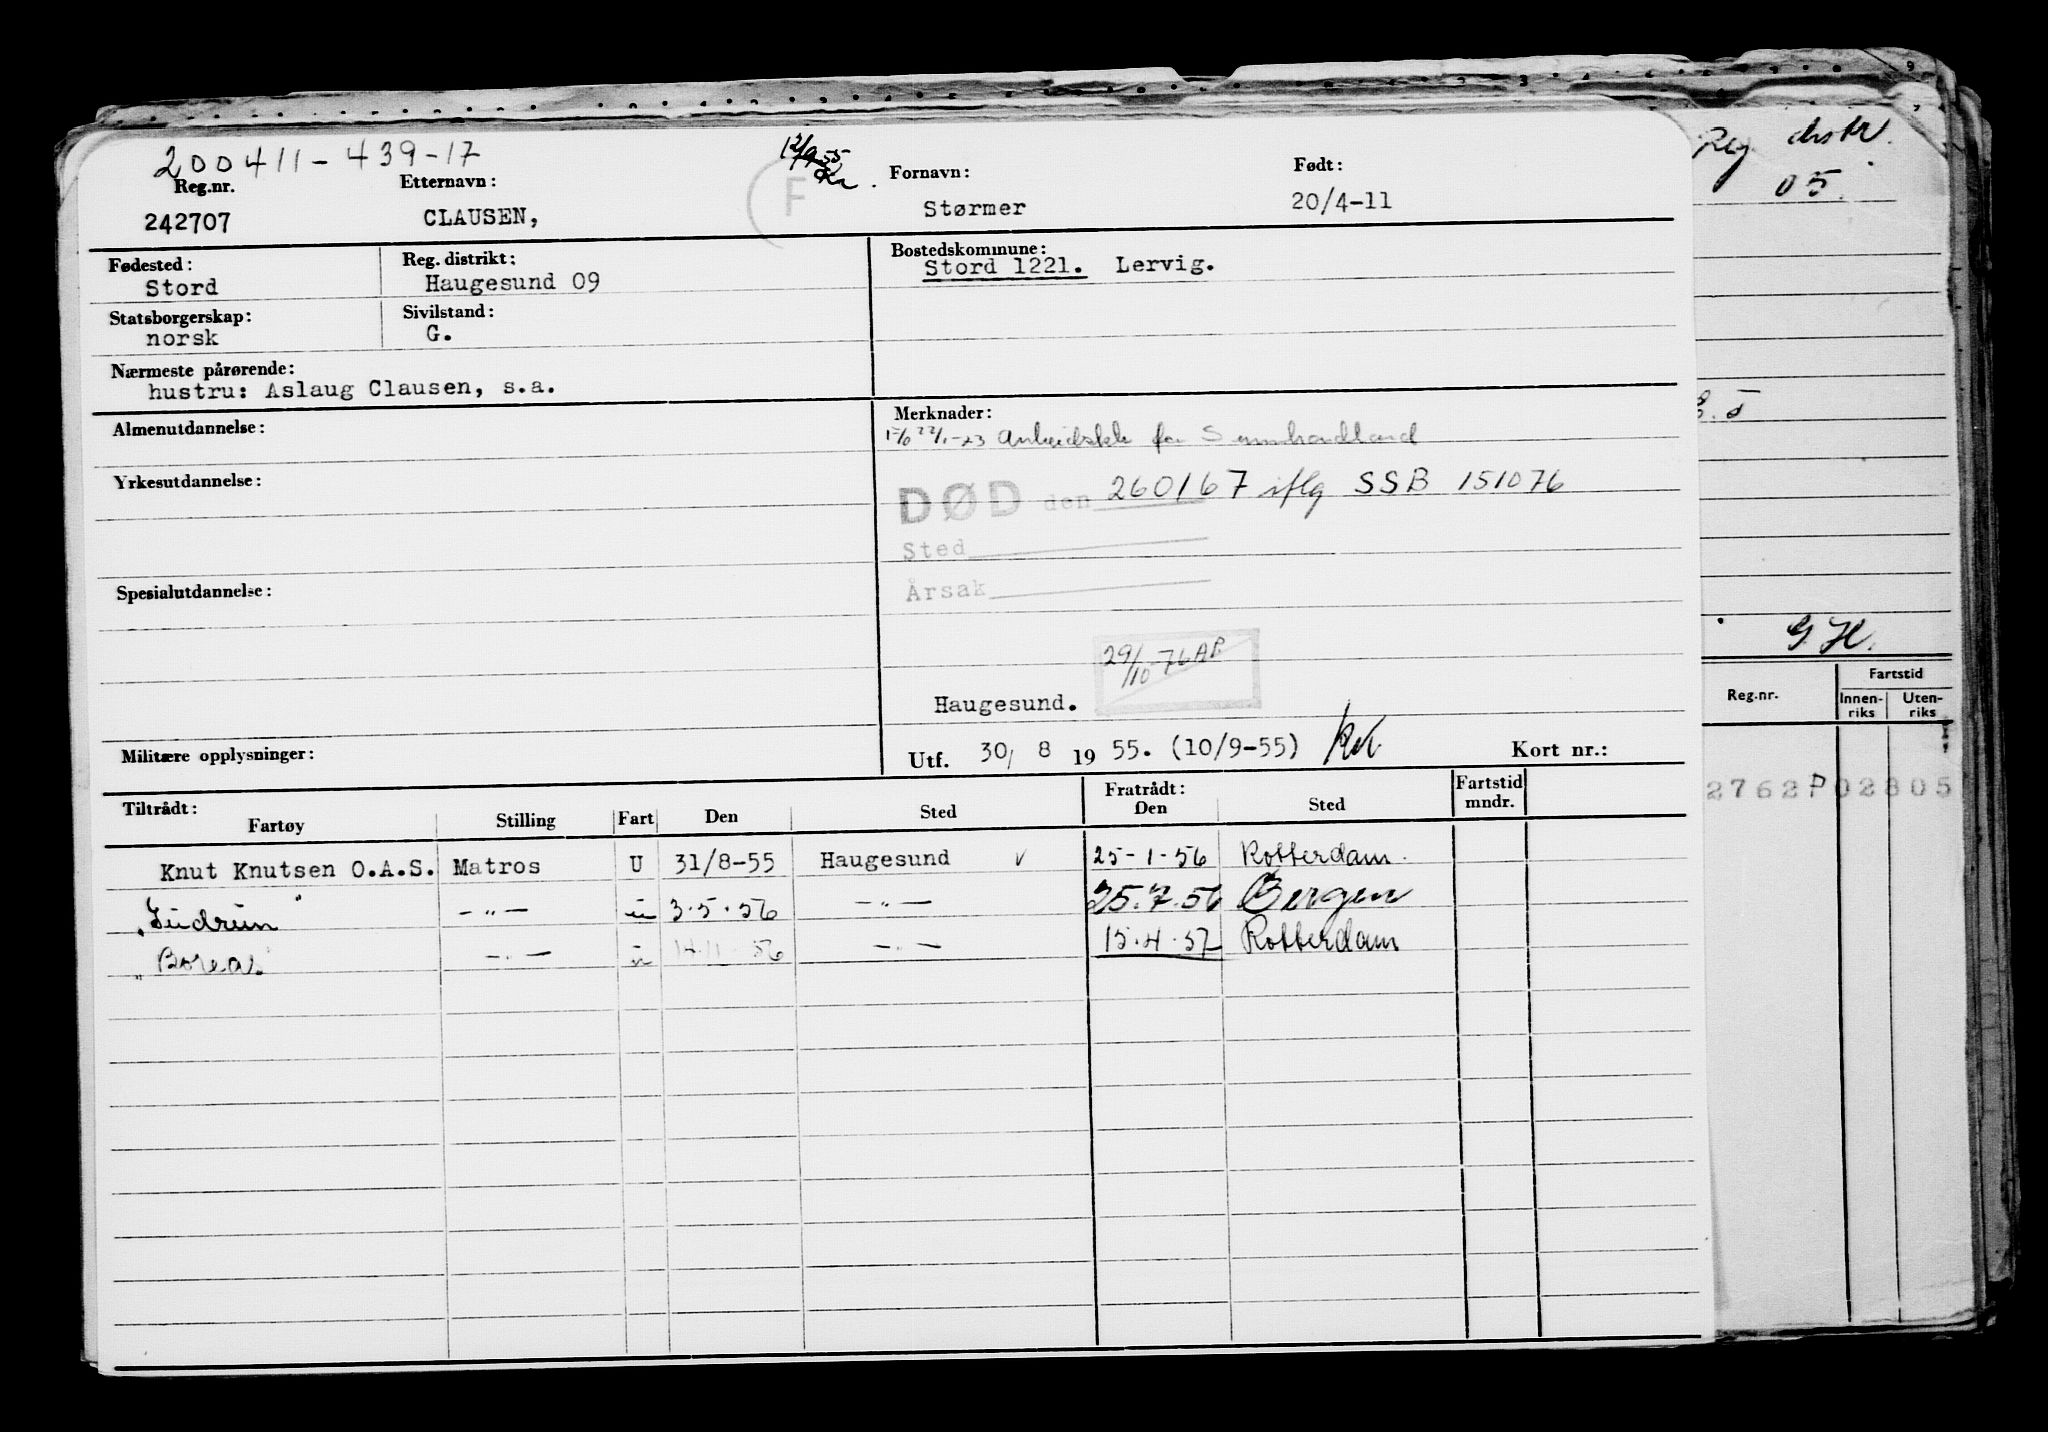 200411-439-17
12/9 55
Reg.nr. Etternavn: F Fornavn: Født:
242707 CLAUSEN, Størmer 20/4-11
Fødested: Reg. distrikt: Bostedskommune:
Stord Haugesund 09 Stord 1221. Lervig.
Statsborgerskap: Sivilstand:
norsk G.
Nærmeste pårørende:
hustru: Aslaug Clausen, s.a.
Almenutdannelse: Merknader:
for Sunnhordland
Yrkesutdannelse:
DØD den 260167 iflg SSB 151076
Sted
Spesialutdannelse: Årsak
29/10-76 AP.
Haugesund.
Militære opplysninger: Utf. 30/ 8 19 55. (10/9-55) Kort nr.:
Tiltrådt: Fratrådt: Fartstid
Fartøy Stilling Fart Den Sted Den Sted mndr.
Knut Knutsen O.A.S. Matros U 31/8-55 Haugesund v 25-1-56 Rotterdam.
"Gudrun" -"- u 3.5.56 -"- 25.7.56 Bergen
"Boreas -"- u 14.11.56 -"- 15.4.57 Rotterdam
Reg. distr.
05.
G.H.
Reg.nr. Fartstid
Innen-riks Uten-riks
2762P02805